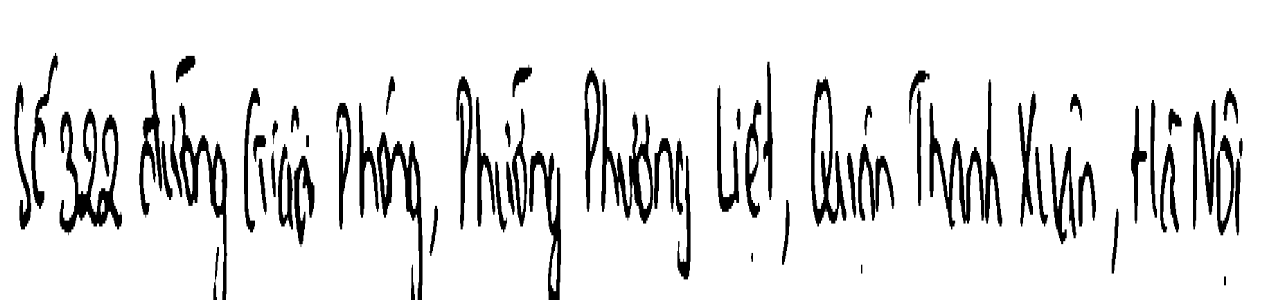 Số 322 đường Giải Phóng, Phường Phương Liệt, Quận Thanh Xuân, Hà Nội